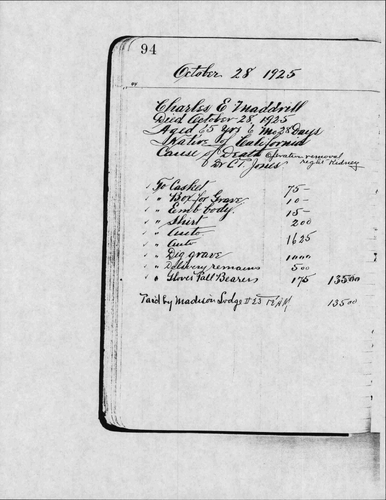 94
October 28 1925
Charles E Maddrill
Died October 28, 1925
Aged 65 yrs 6 Mo 28 Days
Native of California
Cause of Death Operation removal
right Kidney
Dr C Jones
To Casket 75-
" " Box for Grave 10-
" " Emb body. 15-
" " Shirt 200
" " Auto 1625
" " Auto
" " Dig grave 1000
" " Delivery remains 500
" " Gloves Pall Bearers 175 13500
Paid by Madison Lodge # 23 13500